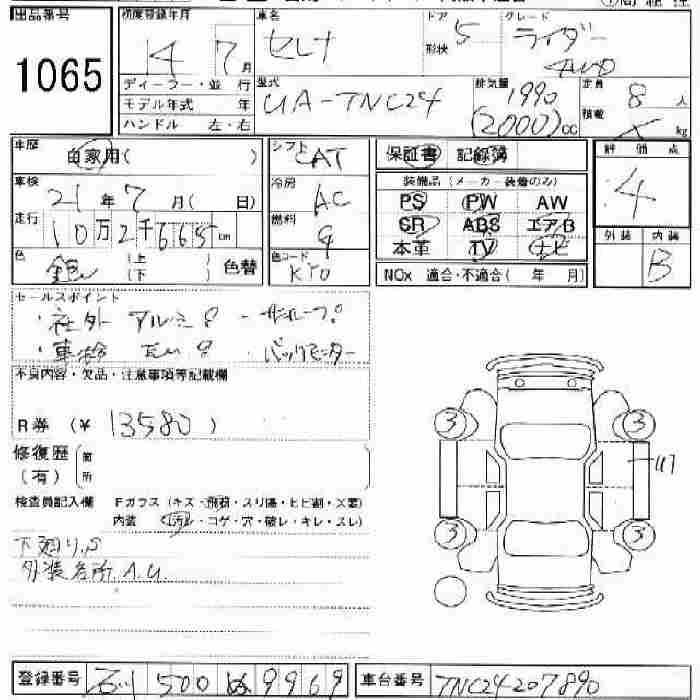 出品番号 初度登録年月 車名 ドア グレード
1065 14 7月 セレナ 形状 5 ライダー 4WD
ディーラー・並行 型式 排気量 定員 8人
モデル年式 年 UA-TNC24 1990 積載 kg
ハンドル 左・右 (2000)cc
車歴 自家用( ) シフト CAT 保証書 記録簿 評価点
車検 21年7月( 日) 冷房 AC 装備品(メーカー装着のみ) 4
走行 10万2千665km 燃料 G PS PW AW
SR ABS エアB 外装 内装
色 銀 (上)(下) 色替 色コード KY0 本革 TV ナビ B
NOx 適合・不適合( 年 月)
セールスポイント
・社外アルミ
・車検 バックモニター
不具内容・欠品・注意事項等記載欄
R券 (¥ 13580 )
修復歴 箇
(有) 所
検査員記入欄 Fガラス(キズ・飛石・スリ傷・ヒビ割・X要)
内装 (汚レ・コゲ・穴・破レ・キレ・スレ)
下廻り.S
外装各所.A.U.
3 3
U7
3 3
登録番号 石川 500 ぬ 9969 車台番号 TNC24-207890